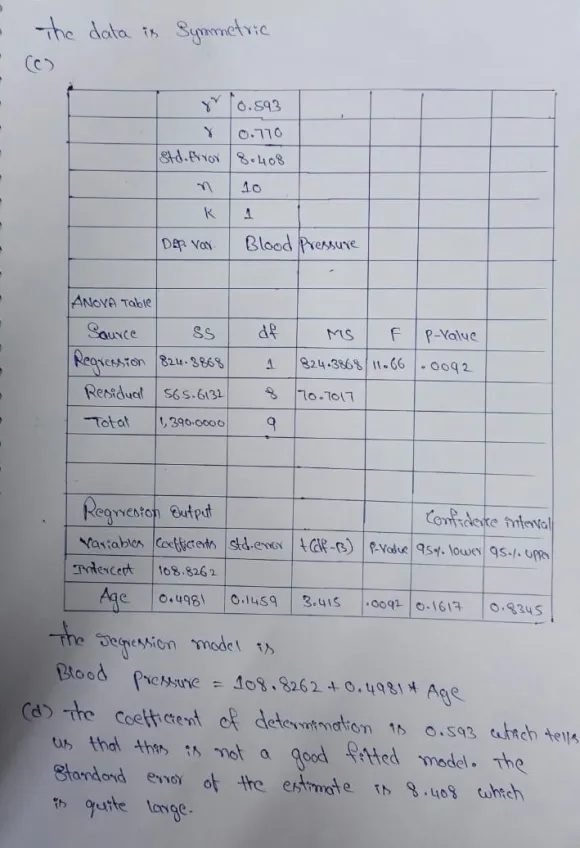 The data is Symmetric
(c)
r² 0.593
r 0.770
Std. Error 8.408
n 10
K 1
Dep Var. Blood Pressure
ANOVA Table
Source SS df MS F P-Value
Regression 824.3868 1 824.3868 11.66 .0092
Residual 565.6132 8 70.7017
Total 1,390.0000 9
Regression Output Confidence interval
Variables Coefficients Std.error t(df=8) P-value 95% lower 95% upper
Intercept 108.8262
Age 0.4981 0.1459 3.415 .0092 0.1617 0.8345
The regression model is
Blood Pressure = 108.8262 + 0.4981 * Age
(d) The coefficient of determination is 0.593 which tells
us that this is not a good fitted model. The
Standard error of the estimate is 8.408 which
is quite large.